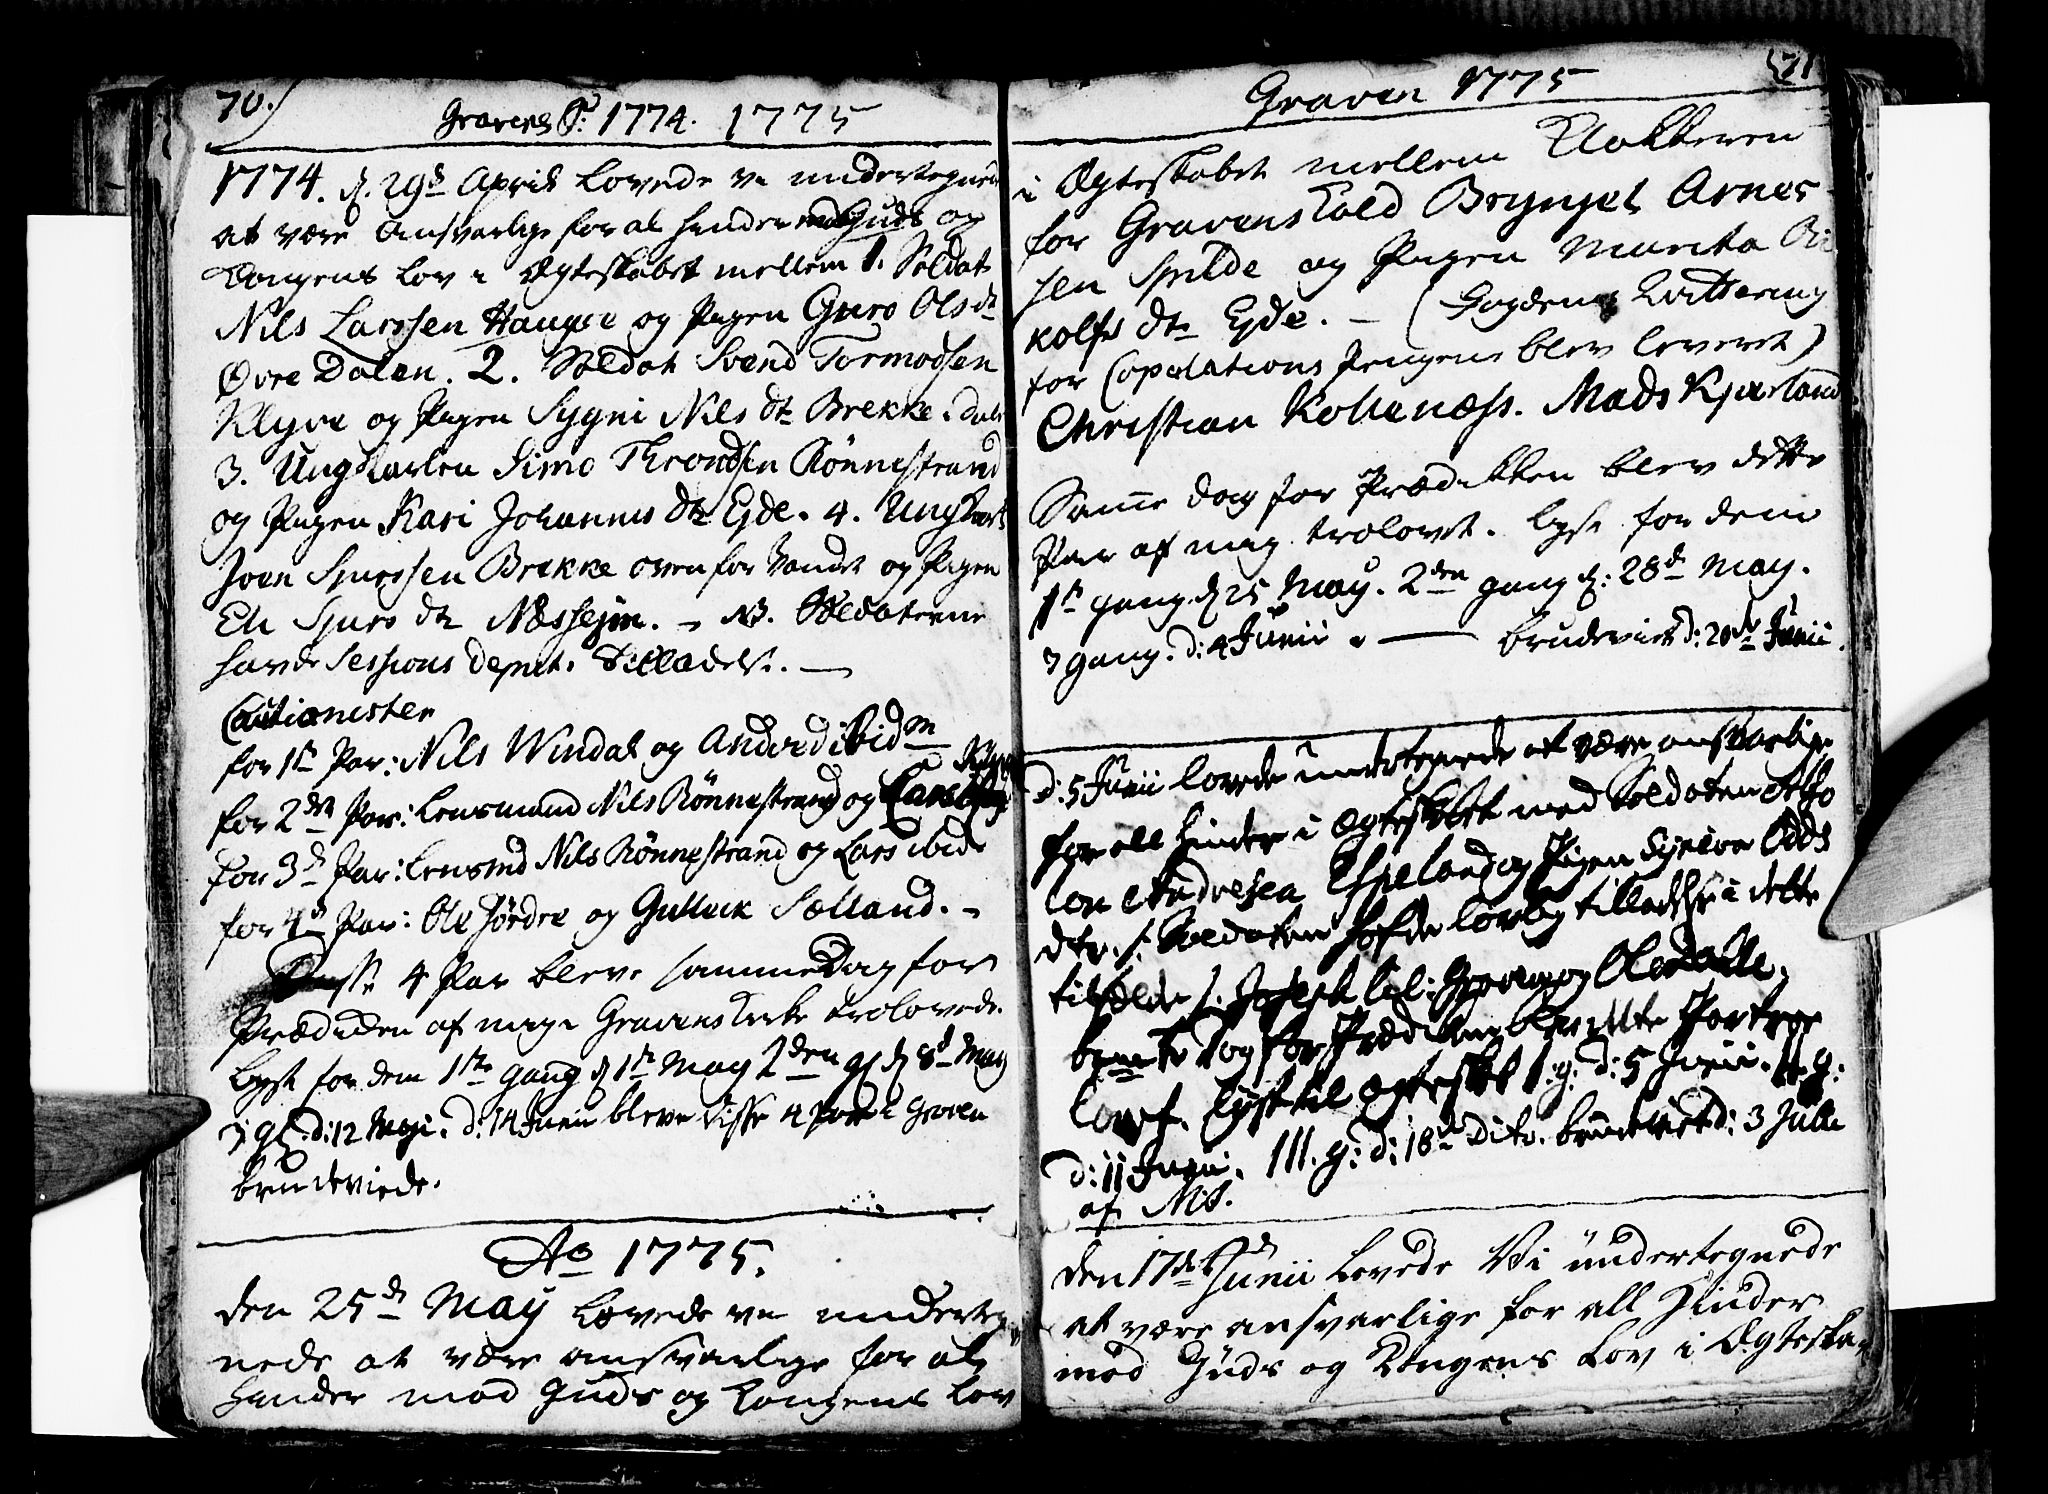 70.)
Gravens S: 1774. 1775
1774. d. 29de April lovede vi undertegnede
at være Ansvarlige for al hinder mod Guds og
Kongens Lov i Ægteskabet mellem 1. Soldat
Nils Larssen Hauge og Pigen Guro Ols dtr
Øvre Dalen. 2. Soldat Svend Tormodsen
Klyve og Pigen Sygni Nils dtr Brekke
3. Ungkarlen Simo Throndsen Rønnestrand
og Pigen Kari Johannis dtr Ejde. 4. Ungkarl
Joen Sjurssen Brekke oven for Vandet og Pigen
Eli Sjurs dtr Næssejm. - NB. Soldaterne
havde Sessions Deput. Tilladelse. —
Cautionister
for 1te Par: Nils Windal og Andved ibidm
for 2det Par: Lensmand Nils Rønnestrand og
for 3de Par: Lensmd Nils Rønnestrand og Lars ibid
for 4de Par: Ole Jørdre og Gulleik Sælland. -
Disse 4 Par bleve samme Dag for
Prædiken af mig i Gravens Kirke trolovede.
Lyst for dem 1te gang d 1te May 2den g d 8de May
3 g. d: 12 Maji. d: 14 Junii bleve disse 4 Par i Graven
brudeviede.
Ao 1775.
den 25de May lovede vi underteg-
nede at være ansvarlige for al
Hinder mod Guds og Kongens Lov
71
Graven 1775
i Ægteskabet mellem Klokkeren
for Gravens Kald Brynjel Arnes
sen Spilde og Pigen Marita
kolfs dtr Ejde. - (Fogdens Qvittering
for Copulations Pengene blev leveret)
Christian Kollenæss. Mads Kjerland
Samme dag for Prædikken blev dette
Par af mig trolovet. lyst for dem
1te gang d 25 May. 2den gang d: 28de May.
3 gang. d: 4 Junii. — brudeviet d: 20de Junii.
d: 5 Junii lovede undertegnede at være ansvarlige
for all hinder i Ægteskabet med Soldaten
Andresen Espeland og Pigen Synève Odds
dtr. /: Soldaten hafde lovlig tilladelse i dette
tilfælde :/
Dag for Prædiken
lovf. lyst til Ægteskab I. g: d: 5 Junii. II. g:
d: 11 Junii. III. g: d: 18de dito. brudeviet d: 3 Julii
af
den 17de Junii Lovede Vi undertegnede
at være ansvarlige for all Hinder
mod Guds og Kongens Lov i Ægteska-